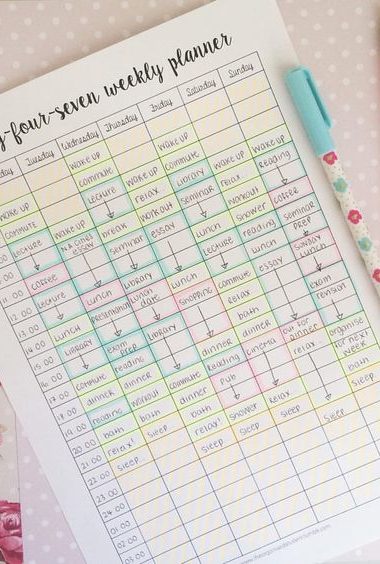 y-four-seven weekly planner
day
Tuesday
Wednesday
Thursday
Friday
Saturday
Sunday
11:00
12:00
13:00
14:00
15:00
16:00
17:00
18:00
19:00
20:00
21:00
22:00
23:00
24:00
wake up
commute
lecture
coffee
lecture
lunch
library
commute
dinner
reading
bath
relax
sleep
wake up
essay
lunch
presentation
exam prep
reading
dinner
workout
bath
sleep
wake up
commute
lecture
break
seminar
library
lunch date
library
commute
dinner
bath
relax
sleep
wake up
relax
workout
essay
lunch
shopping
dinner
reading
pub
shower
sleep
wake up
commute
library
seminar
lunch
lecture
commute
relax
bath
dinner
cinema
relax
sleep
wake up
relax
workout
shower
reading
lunch
essay
out for
dinner
relax
sleep
wake up
reading
coffee
seminar
prep
Sunday
lunch
exam
revision
organise
for next
week
bath
sleep